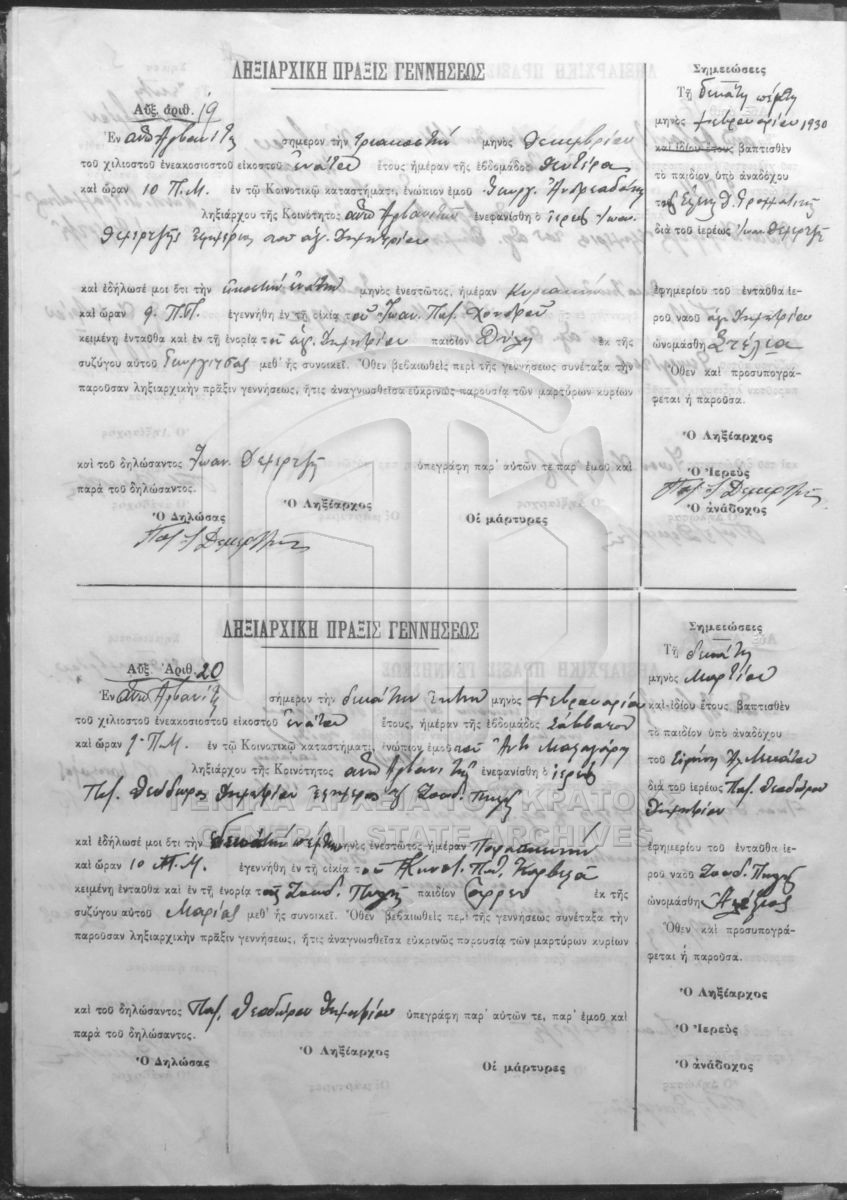 ΛΗΞΙΑΡΧΙΚΗ ΠΡΑΞΙΣ ΓΕΝΝΗΣΕΩΣ
Αὔξ. ἀριθ. 19
Ἐν σήμερον τὴν τριακοστὴν μηνὸς Δεκεμβρίου
τοῦ χιλιοστοῦ ἐνεακοσιοστοῦ εἰκοστοῦ ἐνάτου ἔτους ἡμέραν τῆς ἑβδομάδος Δευτέρα
καὶ ὥραν 10 Π.Μ. ἐν τῷ Κοινοτικῷ καταστήματι, ἐνώπιον ἐμοῦ Γεωργ.
ληξιάρχου τῆς Κοινότητος ἐνεφανίσθη ὁ ἱερεὺς Ἰωαν.
Δεμερτζῆς ἐφημέριος του αγ. Δημητρίου
καὶ ἐδήλωσέ μοι ὅτι τὴν εἰκοστὴν ἐνάτην μηνὸς ἐνεστῶτος, ἡμέραν Κυριακὴν
καὶ ὥραν 9. Π.Μ. ἐγεννήθη ἐν τῇ οἰκίᾳ τοῦ Ἰωαν. Παπ.
κειμένῃ ἐνταῦθα καὶ ἐν τῇ ἐνορίᾳ τοῦ ἁγ. Δημητρίου παιδίον θῆλυ ἐκ τῆς
συζύγου αὐτοῦ Γεωργίτσας μεθ᾽ ἧς συνοικεῖ. Ὅθεν βεβαιωθεὶς περὶ τῆς γεννήσεως συνέταξα τὴν
παροῦσαν ληξιαρχικὴν πρᾶξιν γεννήσεως, ἥτις ἀναγνωσθεῖσα εὐκρινῶς παρουσίᾳ τῶν μαρτύρων κυρίων
καὶ τοῦ δηλώσαντος Ἰωαν. Δεμερτζῆ ὑπεγράφη παρ᾽ αὐτῶν τε παρ᾽ ἐμοῦ καὶ
παρὰ τοῦ δηλώσαντος.
Ὁ Δηλώσας Ὁ Ληξίαρχος Οἱ μάρτυρες
Παπ. Ι Δεμερτζῆς
Σημειώσεις
Τῇ δεκάτῃ πέμπτῃ
μηνὸς Φεβρουαρίου 1930
καὶ ἰδίου ἔτους βαπτισθὲν
τὸ παιδίον ὑπὸ ἀναδόχου
διὰ τοῦ ἱερέως Ἰωαν Δεμερτζῆ
ἐφημερίου τοῦ ἐνταῦθα ἱε-
ροῦ ναοῦ ἁγ. Δημητρίου
ὠνομάσθη Στέλια
Ὅθεν καὶ προσυπογρά-
φεται ἡ παροῦσα.
Ὁ Ληξίαρχος
Ὁ Ἱερεὺς
Παπ. Ι Δεμερτζῆς
Ὁ ἀνάδοχος
ΛΗΞΙΑΡΧΙΚΗ ΠΡΑΞΙΣ ΓΕΝΝΗΣΕΩΣ
Αὔξ. Ἀριθ. 20
Ἐν σήμερον τὴν δεκάτην ἕκτην μηνὸς Φεβρουαρίου
τοῦ χιλιοστοῦ ἐνεακοσιοστοῦ εἰκοστοῦ ἐνάτου ἔτους, ἡμέραν τῆς ἑβδομάδος Σάββατον
καὶ ὥραν Π.Μ. ἐν τῷ Κοινοτικῷ καταστήματι, ἐνώπιον ἐμοῦ τοῦ Ἀντ
ληξιάρχου τῆς Κοινότητος ἐνεφανίσθη ὁ ἱερεὺς
Παπ. Θεόδωρος Δημητρίου ἐφημέριος Ζωοδ. Πηγῆς
ΓΕΝΙΚΑ ΑΡΧΕΙΑ ΤΟΥ ΚΡΑΤΟΥΣ
GENERAL STATE ARCHIVES
καὶ ἐδήλωσέ μοι ὅτι τὴν δεκάτην πέμπτην μηνὸς ἐνεστῶτος ἡμέραν Παρασκευὴν
καὶ ὥραν 10 Μ.Μ. ἐγεννήθη ἐν τῇ οἰκίᾳ τοῦ
κειμένῃ ἐνταῦθα καὶ ἐν τῇ ἐνορίᾳ τῆς Ζωοδ. Πηγῆς παιδίον ἄρρεν ἐκ τῆς
συζύγου αὐτοῦ Μαρίας μεθ᾽ ἧς συνοικεῖ. Ὅθεν βεβαιωθεὶς περὶ τῆς γεννήσεως συνέταξα τὴν
παροῦσαν ληξιαρχικὴν πρᾶξιν γεννήσεως, ἥτις ἀναγνωσθεῖσα εὐκρινῶς παρουσίᾳ τῶν μαρτύρων κυρίων
καὶ τοῦ δηλώσαντος Παπ. Θεοδώρου Δημητρίου ὑπεγράφη παρ᾽ αὐτῶν τε, παρ᾽ ἐμοῦ καὶ
παρὰ τοῦ δηλώσαντος.
Ὁ Δηλώσας Ὁ Ληξίαρχος Οἱ μάρτυρες
Σημειώσεις
Τῇ δεκάτῃ
μηνὸς Μαρτίου
καὶ ἰδίου ἔτους βαπτισθὲν
τὸ παιδίον ὑπὸ ἀναδόχου
τοῦ Εἰρήνη
διὰ τοῦ ἱερέως Παπ. Θεοδώρου
Δημητρίου
ἐφημερίου τοῦ ἐνταῦθα ἱε-
ροῦ ναοῦ Ζωοδ. Πηγῆς
ὠνομάσθη Ἀλέξιος
Ὅθεν καὶ προσυπογρά-
φεται ἡ παροῦσα.
Ὁ Ληξίαρχος
Ὁ Ἱερεὺς
Ὁ ἀνάδοχος